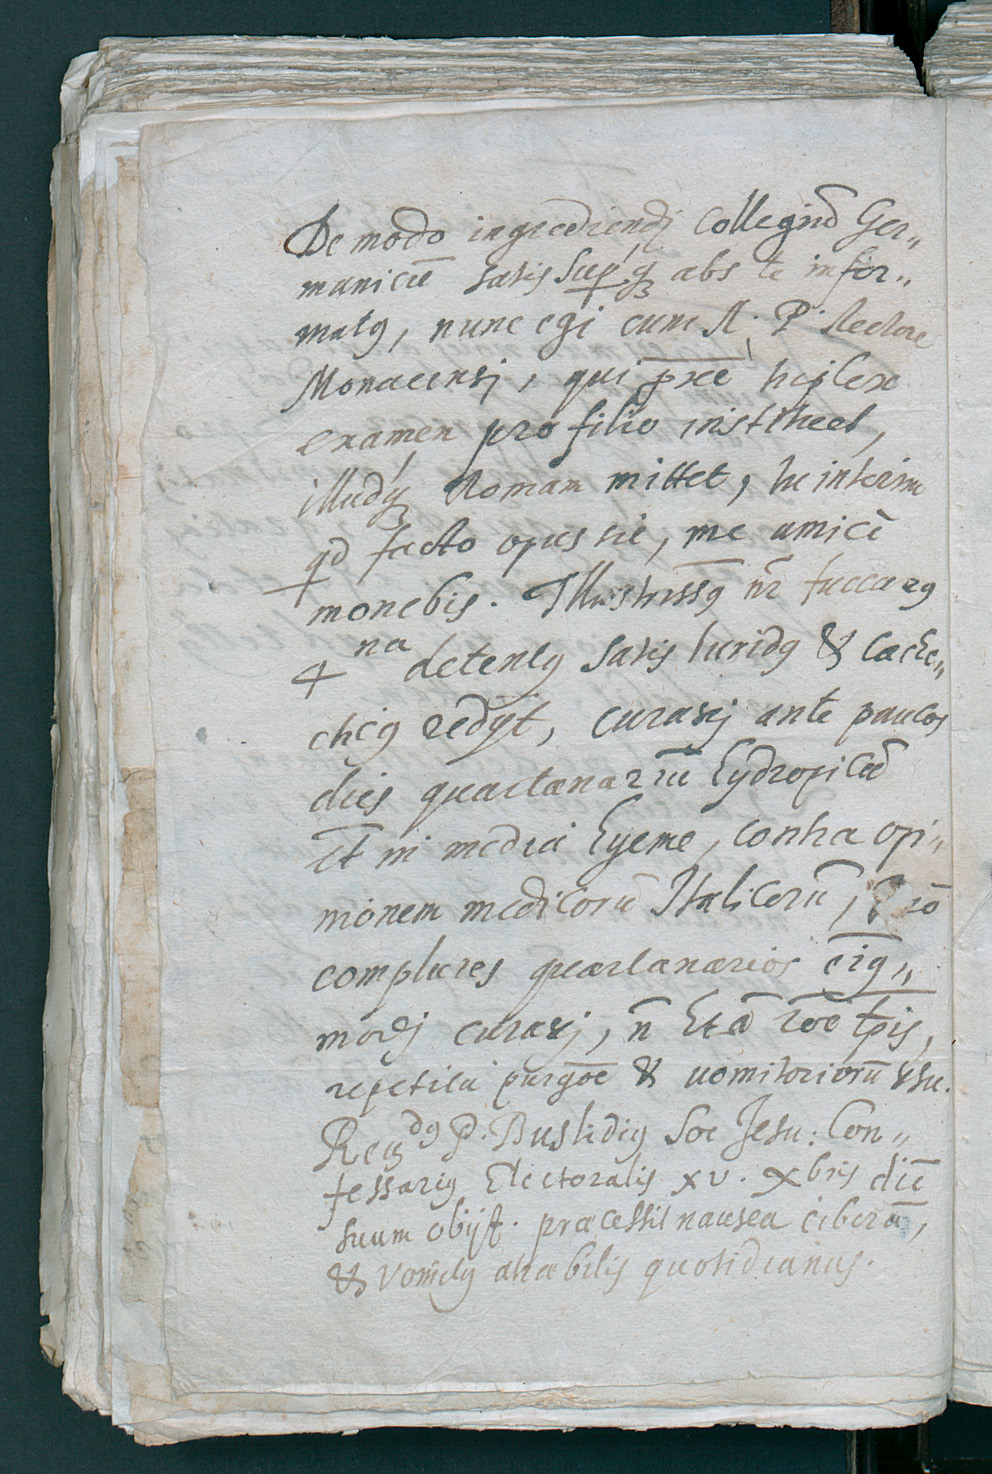 De modo ingrediendj Collegiū Ger„
manicū satis supq́ꝫ abs te infor„
matꝰ, nunc egi cum R. P. Rectore
Monacensj, qui
examen pro filio instituet,
illudq́ꝫ Romam mittet, tu interim
qd facto opus sit, me amicè
monebis. Illustrissꝰ nr̄ fuccarꝰ
4na detentꝰ satis luridꝰ & cache„
cticꝰ redyt, curavj ante paucos
dies quartanariū hydropicū
et in mediâ hyeme, contra opi„
nionem medicorū Italicorū,
complures quartanarios eiꝰ„
modj curavj, n̄ hta rōe tp̄is,
repetitâ purgōe & uomitoriorū usu.
Reuꝫdꝰ P. Buslidiꝰ Soc Jesu. Con„
fessariꝰ Electoralis xv. xbris diē
suum obijt. præcessit nausea ciborū,
& vomitꝰ atræ bilis quotidianus.